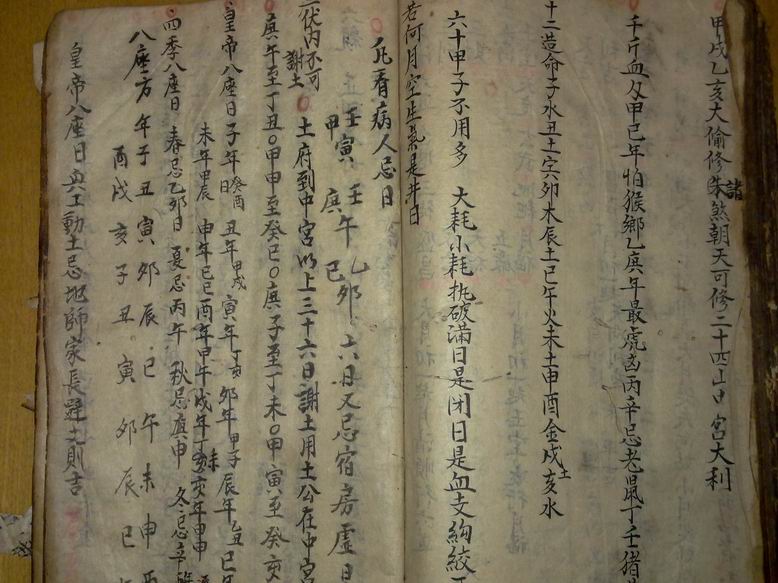 甲戌乙亥大偷修諸煞朝天可修二十四山口宮大利
千斤血刄甲己年怕猴鄉乙庚年最虎凶丙辛忌老鼠丁壬猪
十二造命子水丑土寅卯木辰土巳午火未土申酉金戌土亥水
六十甲子不用多 大耗小耗執破滿日是閉日是血支絢絞
若何月空生氣是井日
凡看病人忌日
壬寅 壬午 乙卯 六日又忌宿房虛日
甲 庚 己
土府到中宮以上三十六日謝土用土公在中宮
伏內不可謝土
庚午至丁丑〇甲申至癸巳〇庚子至丁未〇甲寅至癸亥
皇帝八座日子年癸酉日 丑年甲戌 寅年丁亥 卯年甲子 辰年乙丑 巳年
未年甲辰 申年己巳 酉年甲午 戌年丁未 亥年甲申
四季八座日 春忌乙卯日 夏忌丙午 秋忌庚申 冬忌辛
八座方 年子丑寅卯辰巳午未申酉
酉戌亥子丑寅卯辰巳
皇帝八座日與工動土忌地師家長避之則吉